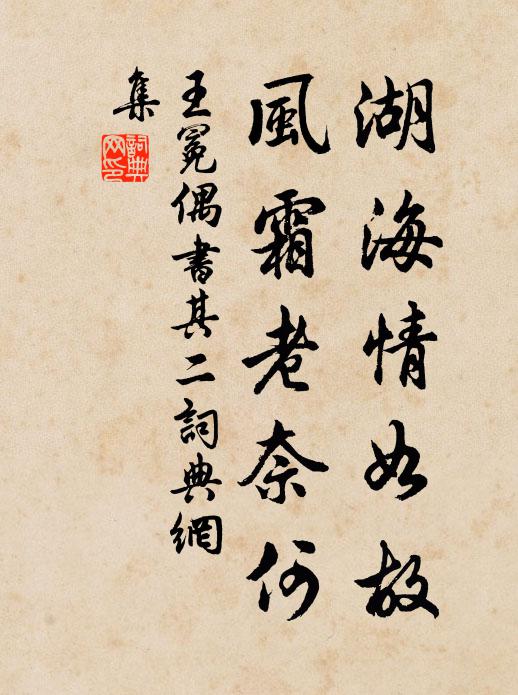 湖海情如故
風霜老奈何
王冕偶書其二詞典網
集
詞典
网印